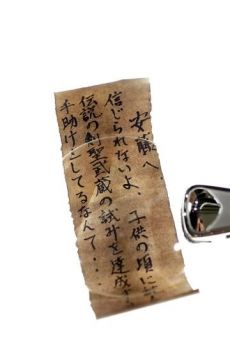 安藤へ
信じられないよ 子供の頃に
伝説の剣聖武蔵の試みを達成
手助けをしてるなんて・・・